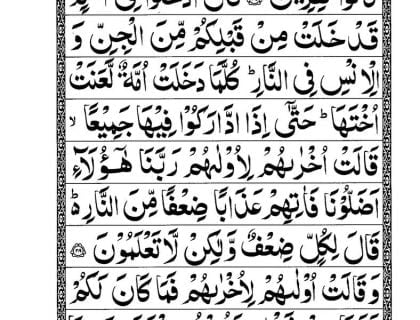 قَدْ خَلَتْ مِنْ قَبْلِكُمْ مِّنَ الْجِنِّ وَ
الْاِنْسِ فِى النَّارِ ؕ كُلَّمَا دَخَلَتْ اُمَّةٌ لَّعَنَتْ
اُخْتَهَا ؕ حَتّٰۤى اِذَا ادَّارَكُوْا فِيْهَا جَمِيْعًا ۙ
قَالَتْ اُخْرٰىهُمْ لِاُوْلٰىهُمْ رَبَّنَا هٰٓؤُلَآءِ
اَضَلُّوْنَا فَاٰتِهِمْ عَذَابًا ضِعْفًا مِّنَ النَّارِ ؕ۬
قَالَ لِكُلٍّ ضِعْفٌ وَّلٰكِنْ لَّا تَعْلَمُوْنَ ﴿۳۸﴾
وَقَالَتْ اُوْلٰىهُمْ لِاُخْرٰىهُمْ فَمَا كَانَ لَكُمْ